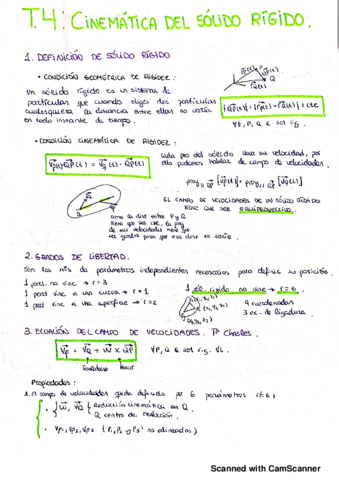 T.4: CINEMÁTICA DEL SÓLIDO RÍGIDO.
1. DEFINICIÓN DE SÓLIDO RÍGIDO
• CONDICIÓN GEOMÉTRICA DE RIGIDEZ:
Un sólido rígido es un sistema de
partículas que cuando eliges dos partículas
cualesquiera la distancia entre ellas no varía
en todo instante de tiempo.
∀t, P, Q ∈ sol. rig.
• CONDICIÓN CINEMÁTICA DE RIGIDEZ:
cada pto del sólido lleva su velocidad, por
ello podemos hablar de campo de velocidades.
EL CAMPO DE VELOCIDADES DE UN SÓLIDO RÍGIDO
TIENE QUE SER EQUIPROYECTIVO.
como la dist entre P y Q
tiene que ser cte, la proy
de sus velocidades tiene que
ser iguales para que esa dist no varíe.
2. GRADOS DE LIBERTAD.
Son los nºs de parámetros independientes necesarios para definir su posición.
1 part. no vinc → r = 3
1 part vinc a una curva → r = 1
1 part vinc a una superficie → r = 2
1 sól. rígido no vinc → r = 6.
9 coordenadas
3 ec. de ligadura
3. ECUACIÓN DEL CAMPO DE VELOCIDADES. Tª Chasles.
∀P, Q ∈ sol rig. ∀t.
Propiedades:
1. El campo de velocidades queda definido por 6 parámetros
Reducción cinemática en Q
Q centro de reducción.
(P₁, P₂ y P₃ no alineados)
Scanned with CamScanner